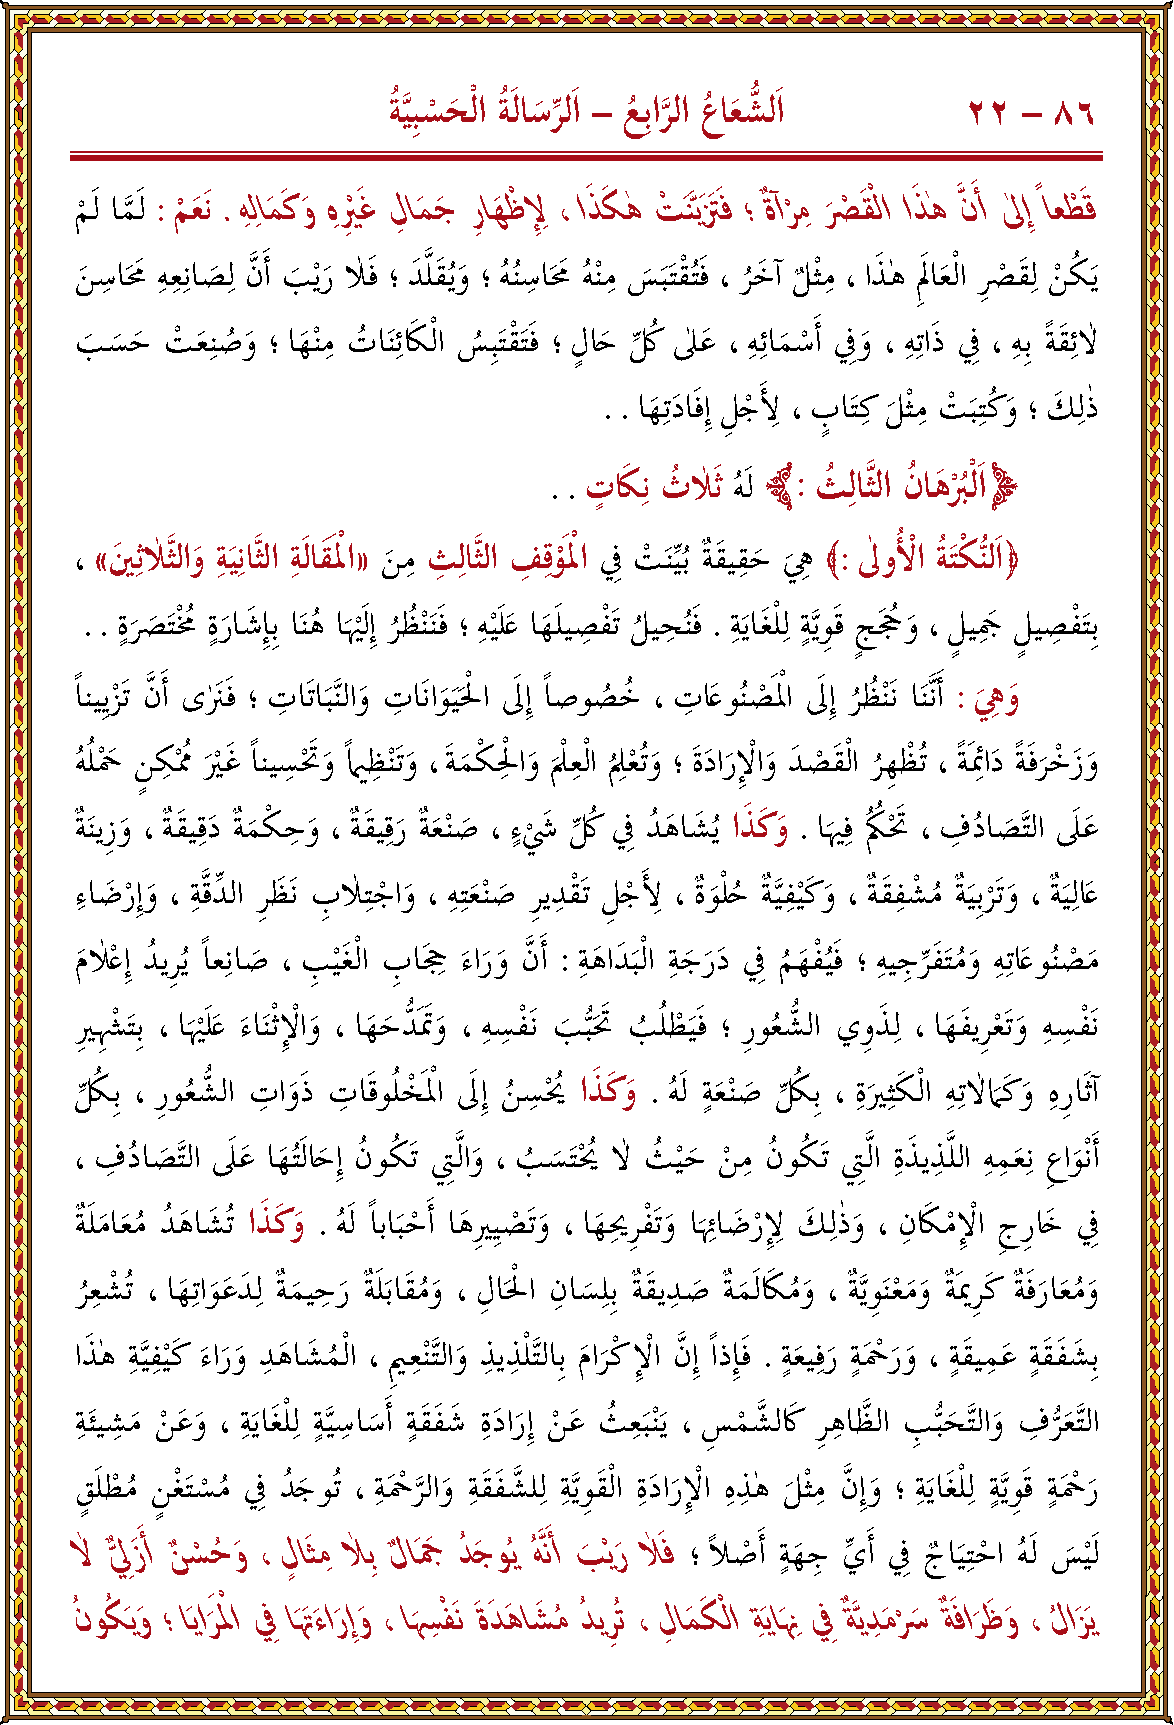 ٨٦ – ٢٢ اَلشُّعَاعُ الرَّابِعُ – اَلرِّسَالَةُ الْحَسْبِيَّةُ
قَطْعاً إِلٰى أَنَّ هٰذَا الْقَصْرَ مِرْآةٌ ؛ فَتَزَيَّنَتْ هٰكَذَا ، لِإِظْهَارِ جَمَالِ غَيْرِهِ وَكَمَالِهِ . نَعَمْ : لَمَّا لَمْ
يَكُنْ لِقَصْرِ الْعَالَمِ هٰذَا ، مِثْلٌ آخَرُ ، فَتُقْتَبَسَ مِنْهُ مَحَاسِنُهُ ؛ وَيُقَلَّدَ ؛ فَلَا رَيْبَ أَنَّ لِصَانِعِهِ مَحَاسِنَ
لَائِقَةً بِهِ ، فِي ذَاتِهِ ، وَفِي أَسْمَائِهِ ، عَلٰى كُلِّ حَالٍ ؛ فَتَقْتَبِسُ الْكَائِنَاتُ مِنْهَا ؛ وَصُنِعَتْ حَسَبَ
ذٰلِكَ ؛ وَكُتِبَتْ مِثْلَ كِتَابٍ ، لِأَجْلِ إِفَادَتِهَا . .
﴿اَلْبُرْهَانُ الثَّالِثُ :﴾ لَهُ ثَلَاثُ نِكَاتٍ . .
﴿اَلنُّكْتَةُ الْأُولٰى :﴾ هِيَ حَقِيقَةٌ بُيِّنَتْ فِي الْمَوْقِفِ الثَّالِثِ مِنَ «الْمَقَالَةِ الثَّانِيَةِ وَالثَّلَاثِينَ» ،
بِتَفْصِيلٍ جَمِيلٍ ، وَحُجَجٍ قَوِيَّةٍ لِلْغَايَةِ . فَنُحِيلُ تَفْصِيلَهَا عَلَيْهِ ؛ فَنَنْظُرُ إِلَيْهَا هُنَا بِإِشَارَةٍ مُخْتَصَرَةٍ . .
وَهِيَ : أَنَّنَا نَنْظُرُ إِلَى الْمَصْنُوعَاتِ ، خُصُوصاً إِلَى الْحَيَوَانَاتِ وَالنَّبَاتَاتِ ؛ فَنَرٰى أَنَّ تَزْيِيناً
وَزَخْرَفَةً دَائِمَةً ، تُظْهِرُ الْقَصْدَ وَالْإِرَادَةَ ؛ وَتُعْلِمُ الْعِلْمَ وَالْحِكْمَةَ ، وَتَنْظِيماً وَتَحْسِيناً غَيْرَ مُمْكِنٍ حَمْلُهُ
عَلَى التَّصَادُفِ ، تَحْكُمُ فِيهَا . وَكَذَا يُشَاهَدُ فِي كُلِّ شَيْءٍ ، صَنْعَةٌ رَقِيقَةٌ ، وَحِكْمَةٌ دَقِيقَةٌ ، وَزِينَةٌ
عَالِيَةٌ ، وَتَرْبِيَةٌ مُشْفِقَةٌ ، وَكَيْفِيَّةٌ حُلْوَةٌ ، لِأَجْلِ تَقْدِيرِ صَنْعَتِهِ ، وَاجْتِلَابِ نَظَرِ الدِّقَّةِ ، وَإِرْضَاءِ
مَصْنُوعَاتِهِ وَمُتَفَرِّجِيهِ ؛ فَيُفْهَمُ فِي دَرَجَةِ الْبَدَاهَةِ : أَنَّ وَرَاءَ حِجَابِ الْغَيْبِ ، صَانِعاً يُرِيدُ إِعْلَامَ
نَفْسِهِ وَتَعْرِيفَهَا ، لِذَوِي الشُّعُورِ ؛ فَيَطْلُبُ تَحَبُّبَ نَفْسِهِ ، وَتَمَدُّحَهَا ، وَالْإِثْنَاءَ عَلَيْهَا ، بِتَشْهِيرِ
آثَارِهِ وَكَمَالَاتِهِ الْكَثِيرَةِ ، بِكُلِّ صَنْعَةٍ لَهُ . وَكَذَا يُحْسِنُ إِلَى الْمَخْلُوقَاتِ ذَوَاتِ الشُّعُورِ ، بِكُلِّ
أَنْوَاعِ نِعَمِهِ اللَّذِيذَةِ الَّتِي تَكُونُ مِنْ حَيْثُ لَا يُحْتَسَبُ ، وَالَّتِي تَكُونُ إِحَالَتُهَا عَلَى التَّصَادُفِ ،
فِي خَارِجِ الْإِمْكَانِ ، وَذٰلِكَ لِإِرْضَائِهَا وَتَفْرِيحِهَا ، وَتَصْيِيرِهَا أَحْبَاباً لَهُ . وَكَذَا تُشَاهَدُ مُعَامَلَةٌ
وَمُعَارَفَةٌ كَرِيمَةٌ وَمَعْنَوِيَّةٌ ، وَمُكَالَمَةٌ صَدِيقَةٌ بِلِسَانِ الْحَالِ ، وَمُقَابَلَةٌ رَحِيمَةٌ لِدَعَوَاتِهَا ، تُشْعِرُ
بِشَفَقَةٍ عَمِيقَةٍ ، وَرَحْمَةٍ رَفِيعَةٍ . فَإِذاً إِنَّ الْإِكْرَامَ بِالتَّلْذِيذِ وَالتَّنْعِيمِ ، الْمُشَاهَدِ وَرَاءَ كَيْفِيَّةِ هٰذَا
التَّعَرُّفِ وَالتَّحَبُّبِ الظَّاهِرِ كَالشَّمْسِ ، يَنْبَعِثُ عَنْ إِرَادَةِ شَفَقَةٍ أَسَاسِيَّةٍ لِلْغَايَةِ ، وَعَنْ مَشِيئَةِ
رَحْمَةٍ قَوِيَّةٍ لِلْغَايَةِ ؛ وَإِنَّ مِثْلَ هٰذِهِ الْإِرَادَةِ الْقَوِيَّةِ لِلشَّفَقَةِ وَالرَّحْمَةِ ، تُوجَدُ فِي مُسْتَغْنٍ مُطْلَقٍ
لَيْسَ لَهُ احْتِيَاجٌ فِي أَيِّ جِهَةٍ أَصْلاً ؛ فَلَا رَيْبَ أَنَّهُ يُوجَدُ جَمَالٌ بِلَا مِثَالٍ ، وَحُسْنٌ أَزَلِيٌّ لَا
يَزَالُ ، وَظَرَافَةٌ سَرْمَدِيَّةٌ فِي نِهَايَةِ الْكَمَالِ ، تُرِيدُ مُشَاهَدَةَ نَفْسِهَا ، وَإِرَاءَتَهَا فِي الْمَرَايَا ؛ وَيَكُونُ